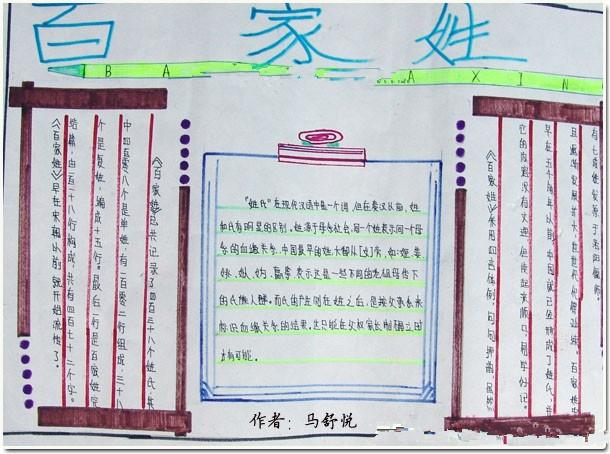 百家姓
BA
AXIN
《百家姓》已共记录了四百三十八个姓氏，其
中四百零八个是单姓，有一百零二行组成，三十八
个是复姓，编成十五行。最后一行是百家姓完
结篇，由一百一十八行构成，共有四百七十二个字。
《百家姓》早在宋朝以前就开始流传了。
“姓氏”在现代汉语中是一个词，但在秦汉以前，姓
和氏有明显的区别。姓源于母系社会，同一个姓表示同一个母
系的血缘关系。中国最早的姓，大都从“女”旁，如：姬、姜、
姒、妫、嬴等，表示这是一些不同的老祖母传下
的氏族人群。而氏的产生则在姓之后，是按父系来
标识血缘关系的结果，这只能在父权家长制确立之时
才有可能。
早在五千多年以前，中国就已经形成了姓氏，并
它的
《百家姓》采用四言体例，句句押韵，虽然
作者：马舒悦